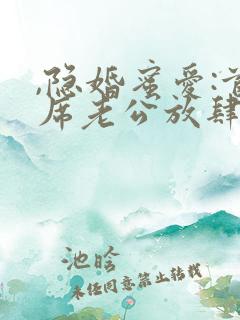 ,隐婚蜜爱:首
席老公放肆
池晗
未经同意禁止转载